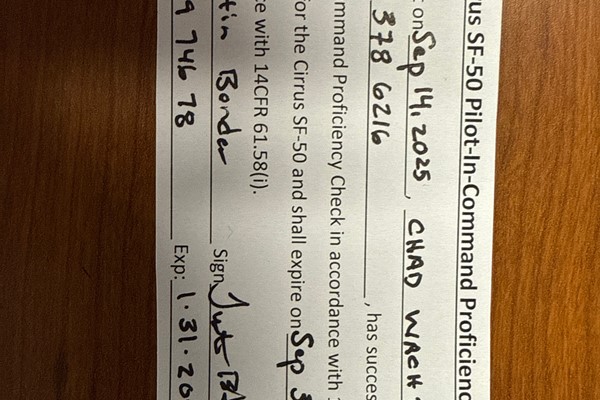 us SF-50 Pilot-In-Command Proficienc
on Sep 14, 2025, CHAD WACH
378 6216, has succes
mmand Proficiency Check in accordance with
or the Cirrus SF-50 and shall expire on Sep 3
ce with 14CFR 61.58(i).
tin Border Sign
9 746 78 Exp: 1.31.20